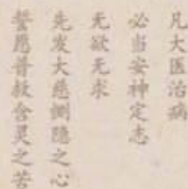 凡大医治病
必当安神定志
无欲无求
先发大慈恻隐之心
誓愿普救含灵之苦